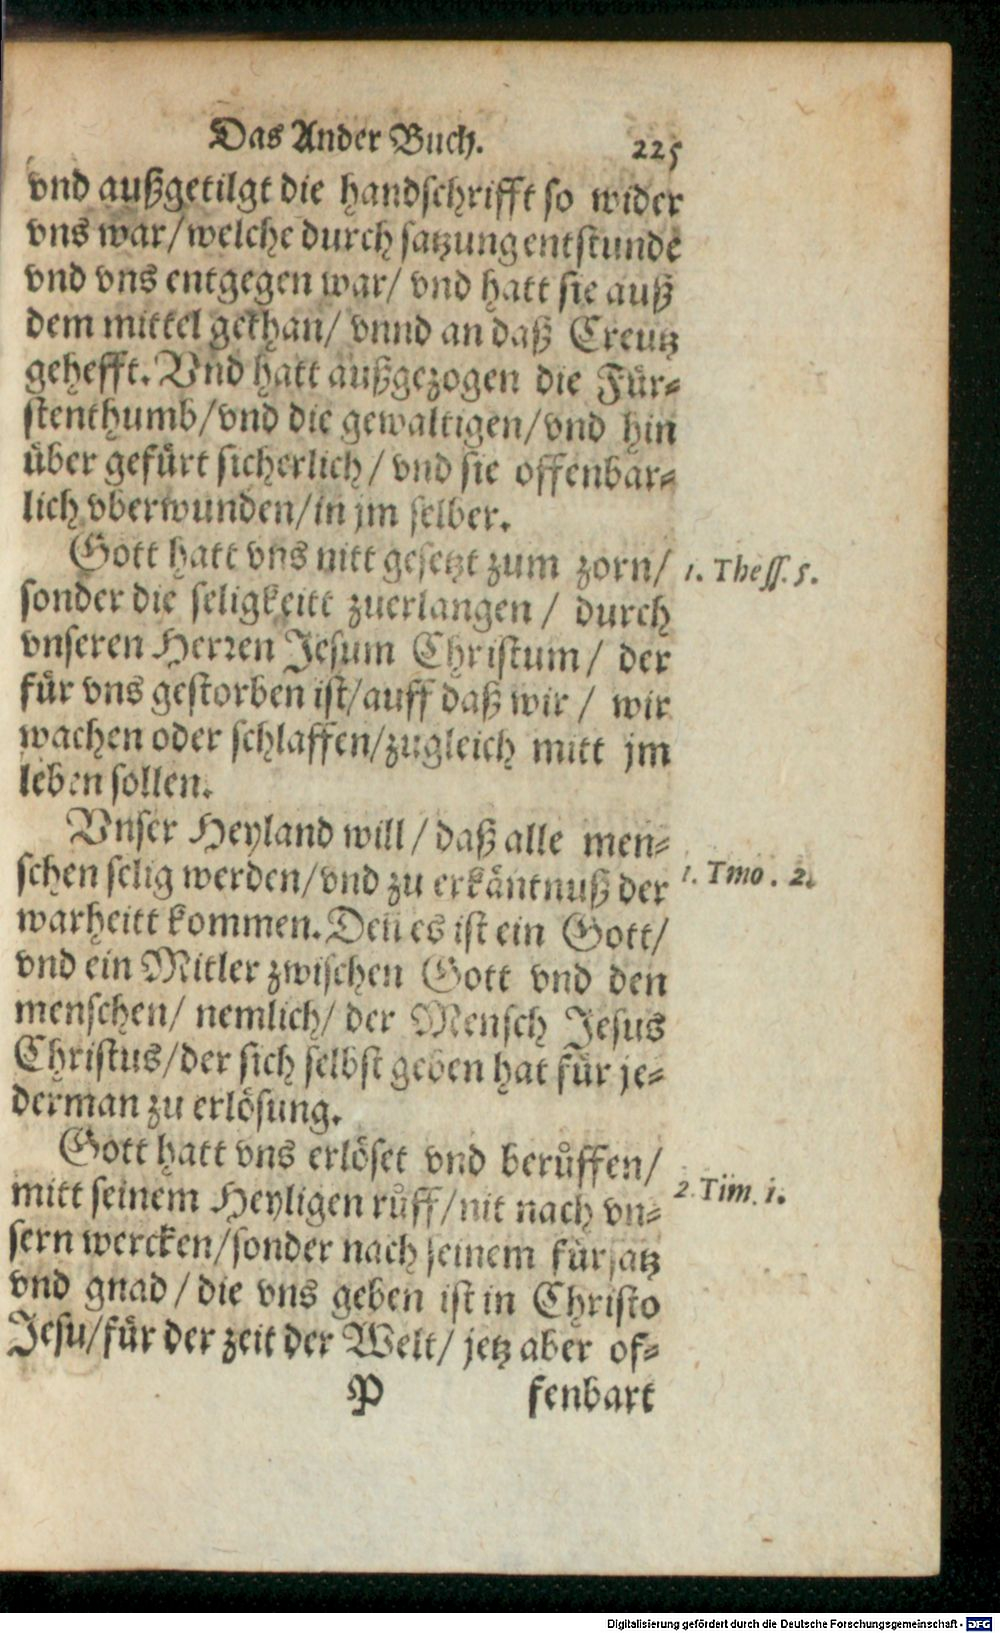 Das Ander Buch. 225
vnd außgetilgt die handschrifft so wider
vns war/welche durch satzung entstunde
vnd vns entgegen war/ vnd hatt sie auß
dem mittel gethan/ vnnd an daß Creutz
gehefft. Vnd hatt außgezogen die Für-
stenthumb/vnd die gewaltigen/vnd hin
über gefürt sicherlich/vnd sie offenbar-
lich vberwunden/in jm selber.
Gott hatt vns nitt gesetzt zum zorn/ 1. Thess. 5.
sonder die seligkeitt zuerlangen/ durch
vnseren Herren Jesum Christum/ der
für vns gestorben ist/auff daß wir/ wir
wachen oder schlaffen/zugleich mitt jm
leben sollen.
Vnser Heyland will/daß alle men-
schen selig werden/vnd zu erkäntnuß der 1. Tmo. 2.
warheitt kommen. Den es ist ein Gott/
vnd ein Mitler zwischen Gott vnd den
menschen/ nemlich/ der Mensch Jesus
Christus/der sich selbst geben hat für je-
derman zu erlösung.
Gott hatt vns erlöset vnd berůffen/
mitt seinem Heyligen růff/nit nach vn- 2. Tim. 1.
sern wercken/sonder nach seinem fürsatz
vnd gnad/die vns geben ist in Christo
Jesu/für der zeit der Welt/ jetz aber of-
P fenbart
Digitalisierung gefördert durch die Deutsche Forschungsgemeinschaft - DFG